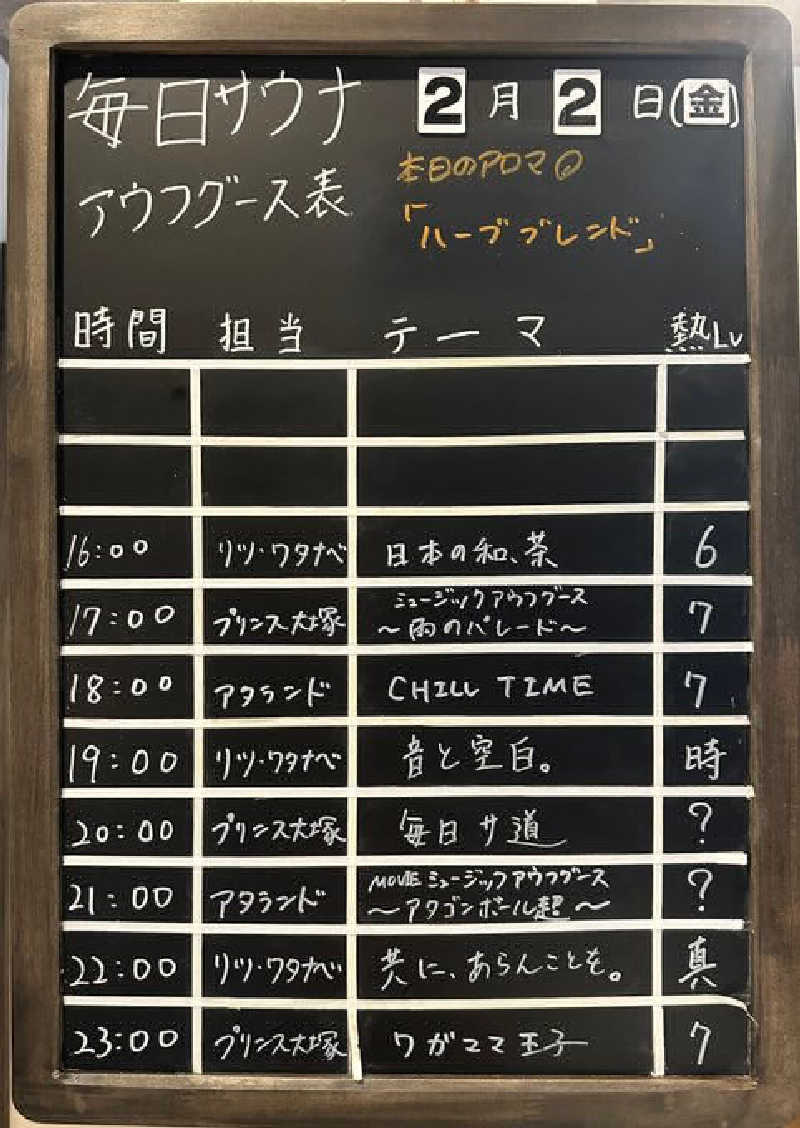 毎日サウナ 2月2日(金)
アウフグース表
本日のアロマ
「ハーブブレンド」
時間 担当 テーマ 熱Lv
16:00 リツ・ワタナベ 日本の和、茶 6
17:00 プリンス大塚 ミュージックアウフグース
〜雨のパレード〜 7
18:00 アタランド CHILL TIME 7
19:00 リツ・ワタナベ 音と空白。 時
20:00 プリンス大塚 毎日サ道 ?
21:00 アタランド MOVIEミュージックアウフグース
〜アタゴンボール超〜 ?
22:00 リツ・ワタナベ 共に、あらんことを。 真
23:00 プリンス大塚 ワガママ王子 7